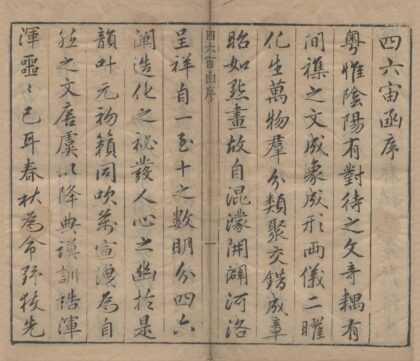 四六宙函序
粤惟陰陽有對待之文奇耦有
間襍之文成象成形兩儀二曜
化生萬物羣分類聚交錯成章
昭如點畫故自混濛開闢河洛
四六宙函序
一
呈祥自一至十之數明分四六
闡造化之秘發人心之幽於是
韻叶元籟同吹萬宣洩為自
然之文唐虞以降典謨訓誥渾
渾噩〻已耳春秋為命先